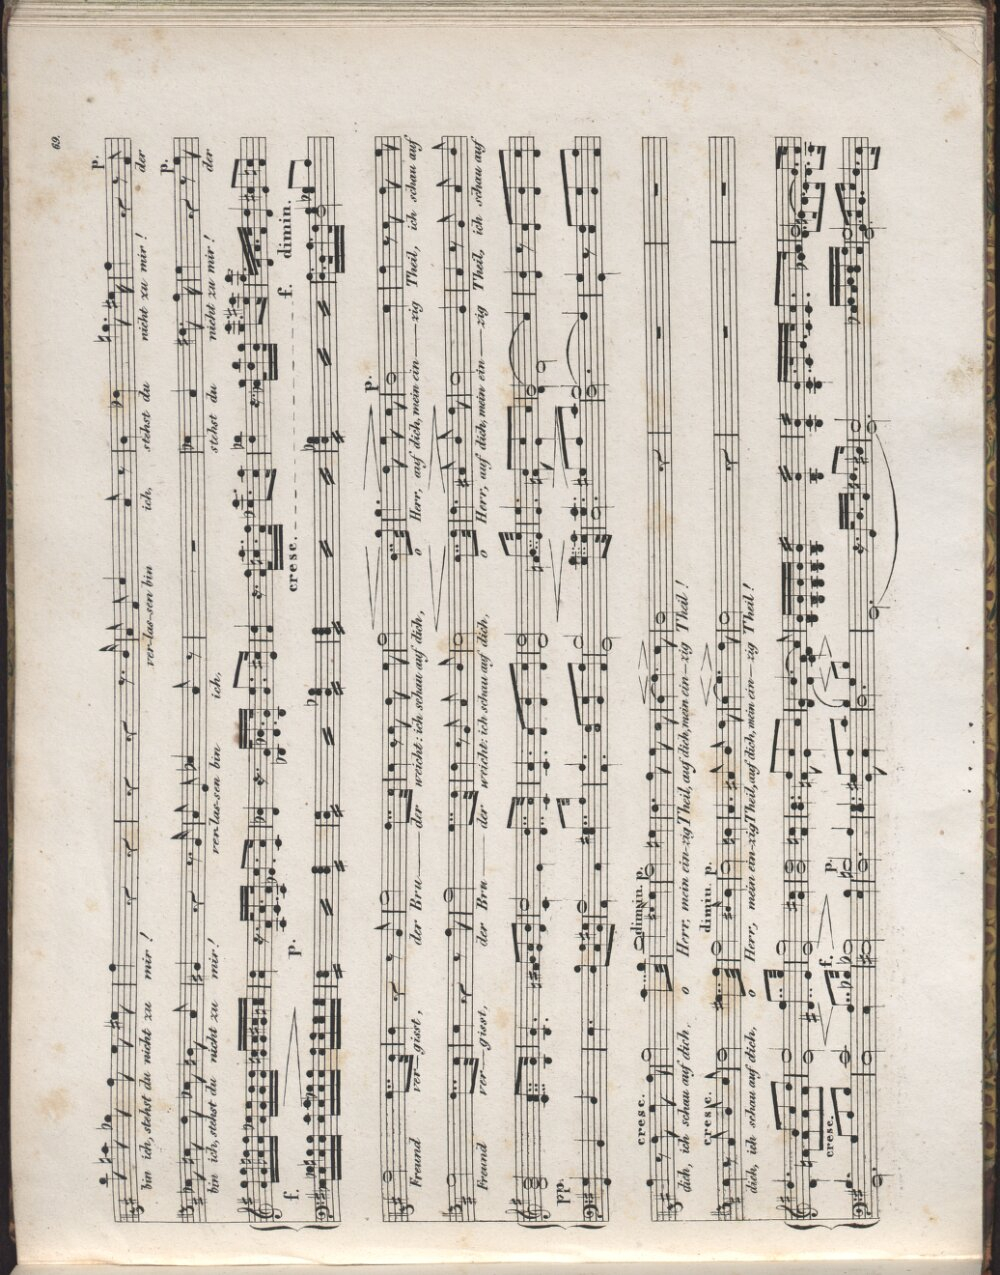 69.
p.
bin ich, stehst du nicht zu mir! ver-las-sen bin ich, stehst du nicht zu mir! der
p.
bin ich, stehst du nicht zu mir! ver-las-sen bin ich, stehst du nicht zu mir! der
f. p. cresc. f. dimin.
p.
Freund ver-gisst, der Bru-der weicht: ich schau auf dich, o Herr, auf dich, mein ein-zig Theil, ich schau auf
Freund ver-gisst, der Bru-der weicht: ich schau auf dich, o Herr, auf dich, mein ein-zig Theil, ich schau auf
pp.
cresc. dimin. p.
dich, ich schau auf dich, o Herr, mein ein-zig Theil, auf dich, mein ein-zig Theil!
cresc. dimin. p.
dich, ich schau auf dich, o Herr, mein ein-zig Theil, auf dich, mein ein-zig Theil!
cresc. f. p.